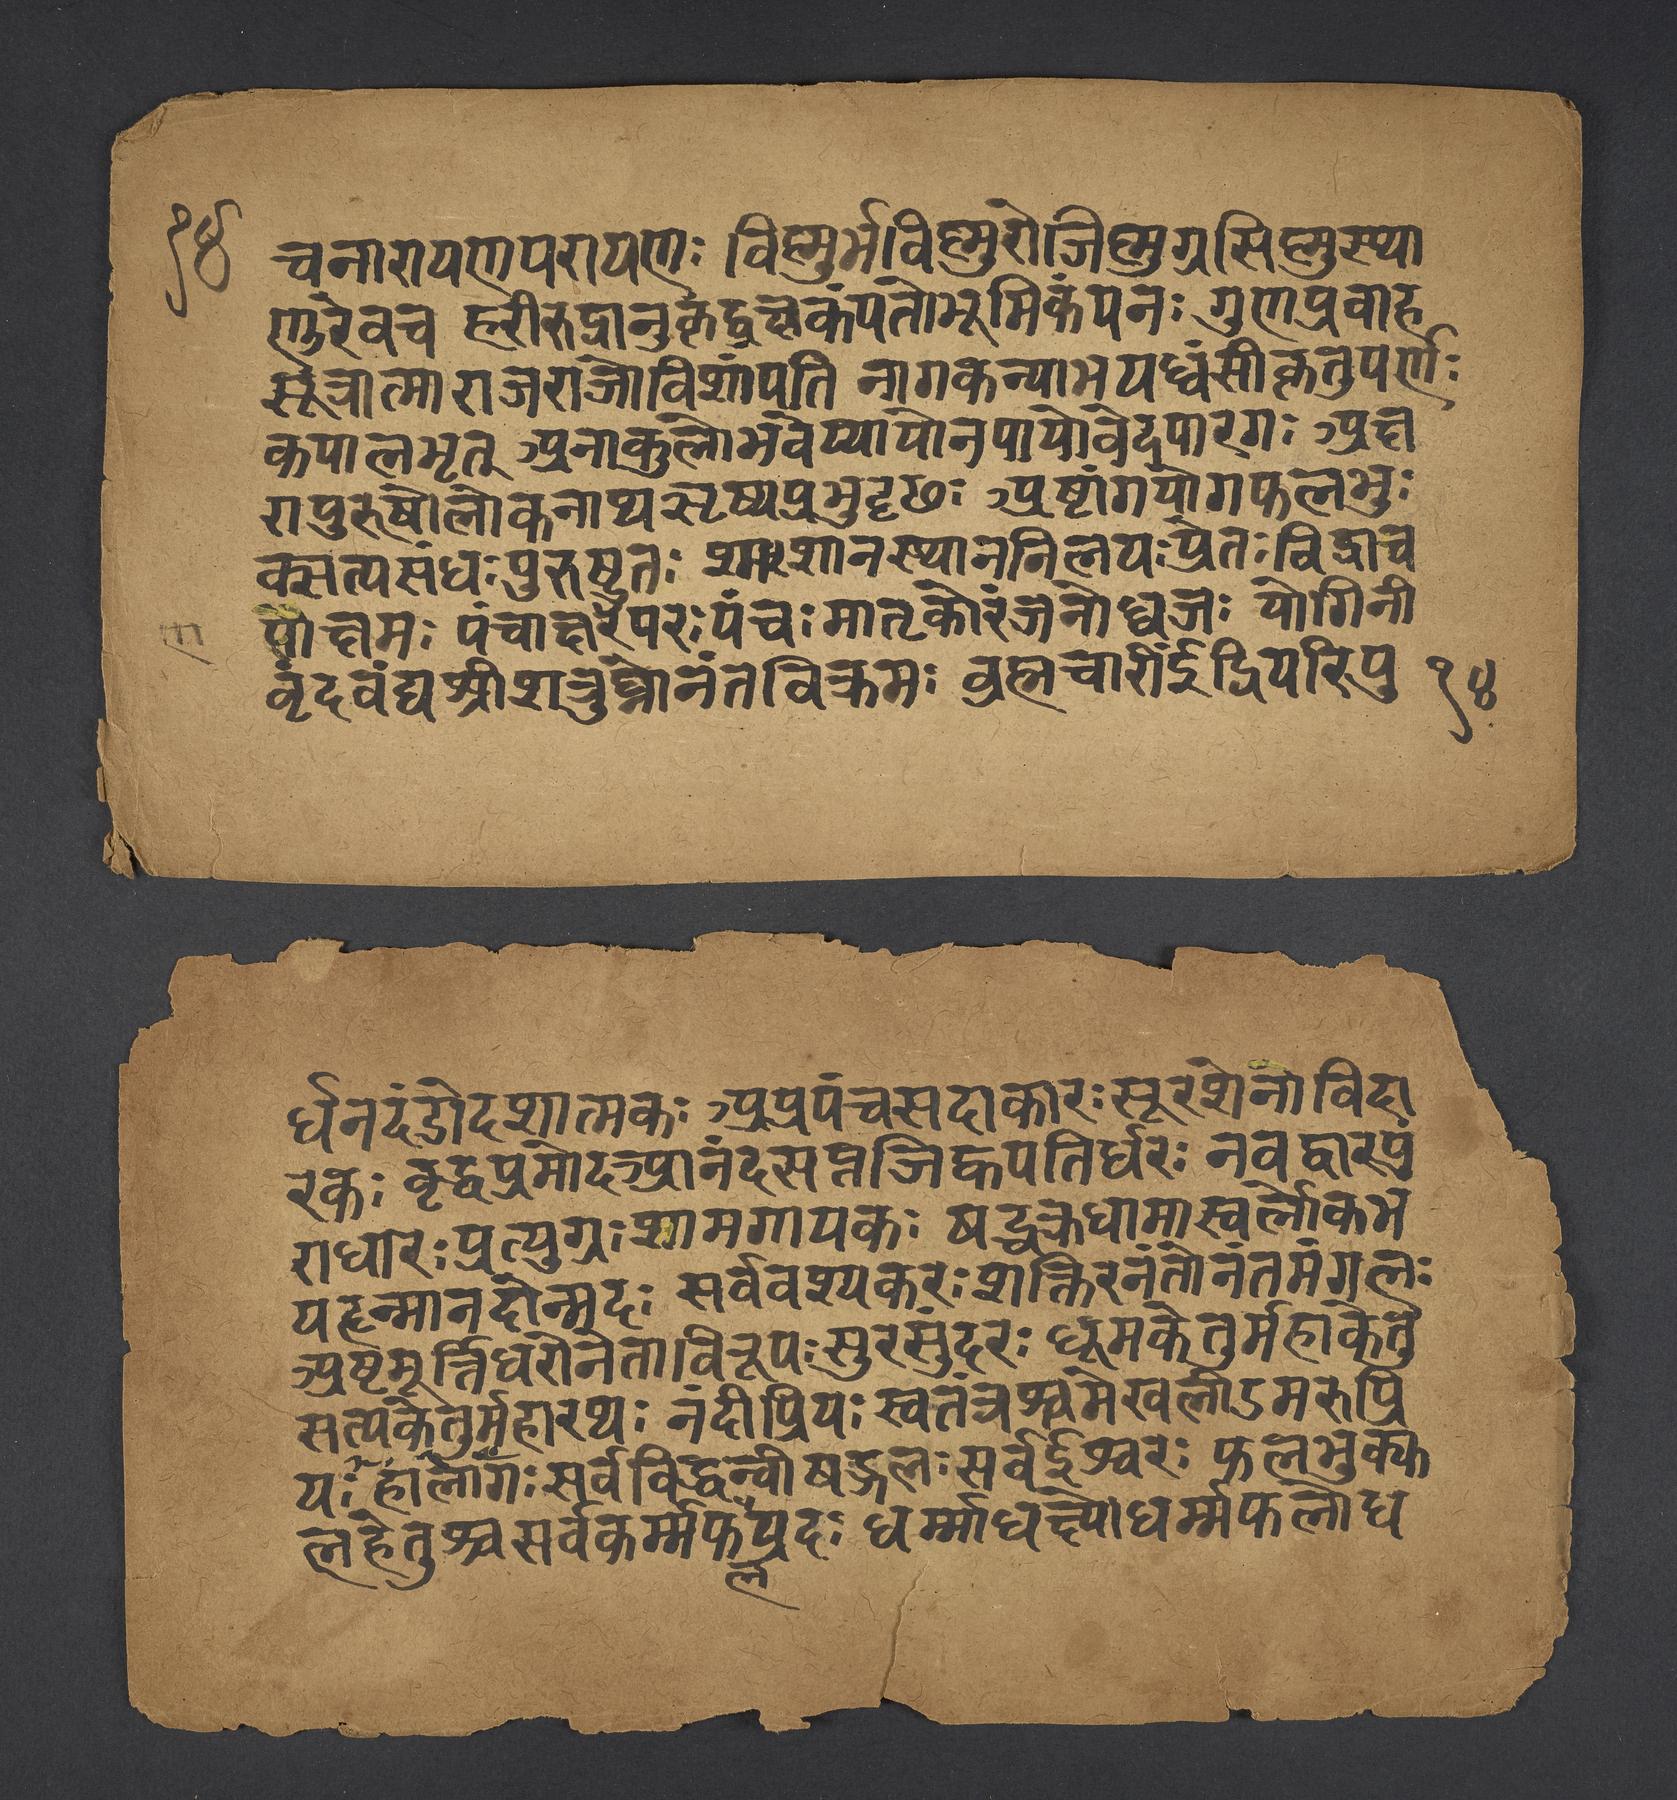 १४
चनारायणपरायणः विष्णुर्भविष्णुरोजिष्णुग्रसिष्णुस्था
णुरेवच ह्लरीरुद्रानुकंद्वृछोकंपतोभूमिकंपनः गुणप्रवाह
सूत्रात्माराजराजोविशांपति नागकन्याभयध्वंसीकृतुपर्णः
कपालभृत् अनाकुलोभवेप्यापोनपायोवेदपारगः अक्ष
रापुरुषोलोकनाथसृष्यप्रभुदृछः अष्टांगयोगफलभुः
क्सत्यसंधःपुरुष्टुतः श्मशानस्थाननिलयःप्रेतःविद्राव
णोक्षमः पंचाक्षरपरःपंचःमातृकोरंजनोध्वजः योगिनी
वृंदवंद्यश्रीशत्रुघ्नोनंतविक्रमः ब्रह्मचारीईंद्रियरिपु
१४
र्धनदंडोदशात्मकः अप्रपंचसदाकारःसूरशेनोविदा
रकः वृद्धप्रमोदआनंदसप्तजिह्वपतिर्धरः नवद्वारपु
राधारःप्रत्युग्रःशामगायकः षट्चक्रधामास्वर्लोकभ
यहृन्मानदोन्मदः सर्ववश्यकरःशक्तिरनंतोनंतमंगलः
अष्टमूर्त्तिधरोनेताविरूपःसुरसुंदरः धूमकेतुर्महाकेतु
सत्यकेतुर्महारथः नंदीप्रियःस्वतंत्रश्चमेखलीडमरुप्रि
यः हालांगःसर्वविद्धन्वीषड्गलःसर्वईश्वरः फलभुक्फ
लहेतुश्चसर्वकर्म्मफलप्रदः धर्म्माधक्ष्योधर्म्मफलोध